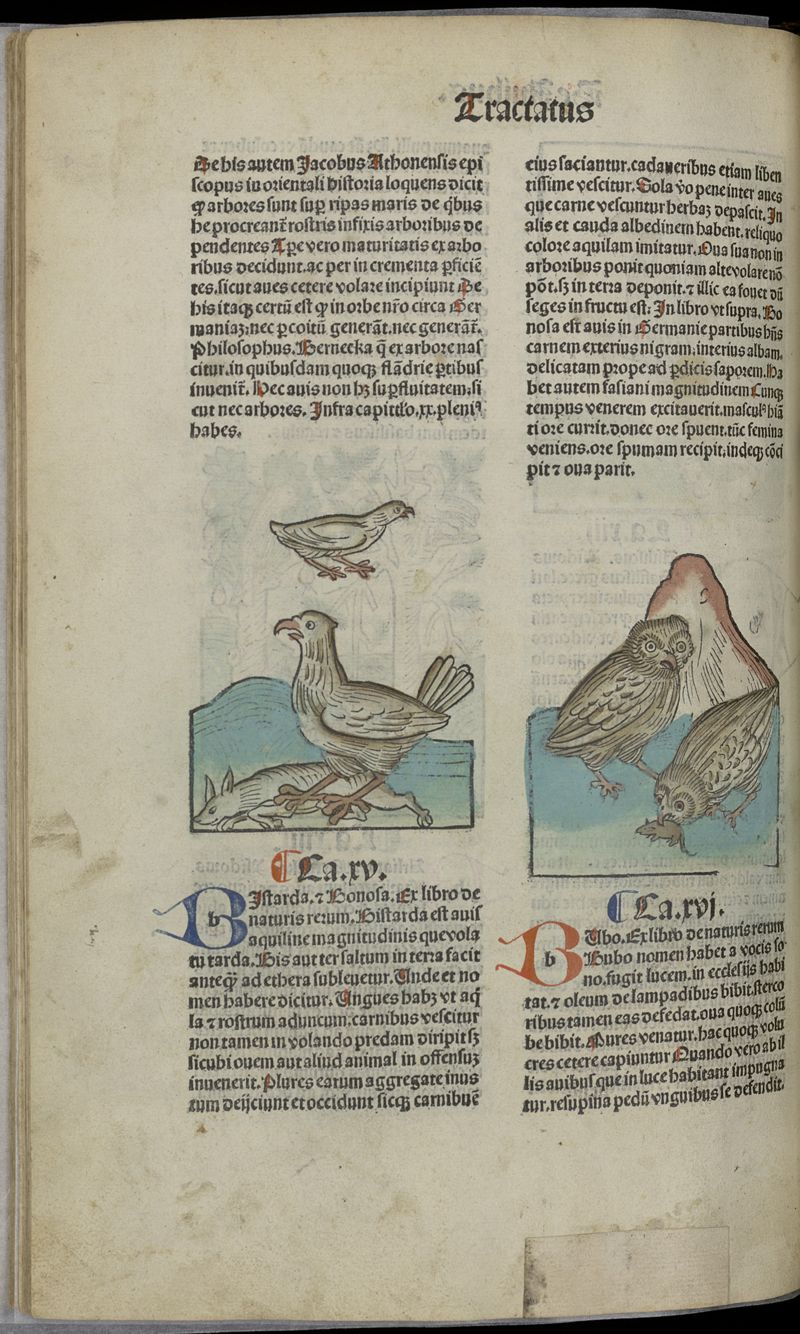 Tractatus
De his autem Jacobus Athonensis epi
scopus in orientali historia loquens dicit
ꝙ arbores sunt suꝑ ripas maris de q̇bus
he procreant᷑ rostris infixis arboribus de
pendentes Tꝑe vero maturitatis ex arbo
ribus decidunt. ac per in crementa ꝑficiē
tes. sicut aues cetere volare incipiunt De
his itaqꝫ certū est ꝙ in orbe nr̄o circa Ger
maniaꝫ: nec ꝑ coitū generāt. nec generāt᷑.
Philosophus. Bernecka q̄ ex arbore nas
citur. in quibusdam quoqꝫ flādrie ꝑtibus
inuenit᷑. Hec auis non hꝫ suꝑfluitatem. si
cut nec arbores. Infra capittl̓o. xx. pleniꝰ
habes.
Ca. xv.
BIstarda. ⁊ Bonosa. Ex libro de
naturis rerum. Bistarda est auis
aquiline magnitudinis que vola
tu tarda. Bis aut ter saltum in terra facit
anteqꝫ̃ ad ethera subleuetur. Unde et no
men habere dicitur. Ungues habꝫ vt aq̇
la ⁊ rostrum aduncum. carnibus vescitur
non tamen in volando predam diripit sꝫ
sicubi ouem aut aliud animal in offensuꝫ
inuenerit. Plures earum aggregate inus
tum deijciunt et occidunt sicqꝫ carnibuē
eius saciantur. cadaueribus etiam liben
tissime vescitur. Sola v̓o pene inter aues
que carne vescuntur herbaꝫ depascit. In
alis et cauda albedinem habent. reliquo
colore aquilam imitatur. Oua sua non in
arboribus ponit quoniam alte volare nō
pōt. sꝫ in terra deponit. ⁊ illic ea fouet dū
seges in fructu est: In libro vt supra. Bo
nosa est auis in Germanie partibus hn̄s
carnem exterius nigram: interius albam.
delicatam prope ad ꝑdicis saporem. Ha
bet autem fasiani magnitudinem Cunqꝫ
tempus venerem excitauerit. masculꝰ hiā
ti ore currit. donec ore spuent. tūc femina
veniens. ore spumam recipit. indeqꝫ cōci
pit ⁊ oua parit.
Ca. xvj.
BUbo. Ex libro de naturis rerum
Bubo nomen habet a vocis so
no. fugit lucem. in ecclesijs habi
tat. ⁊ oleum de lampadibus bibit. sterco
ribus tamen eas defedat. oua quoqꝫ colū
be bibit. Mures venatur. hac quoqꝫ volu
cres cetere capiuntur Quando vero ab il
lis auibus que in luce habitant impugna
tur. resupina pedū vnguibus se defendit.